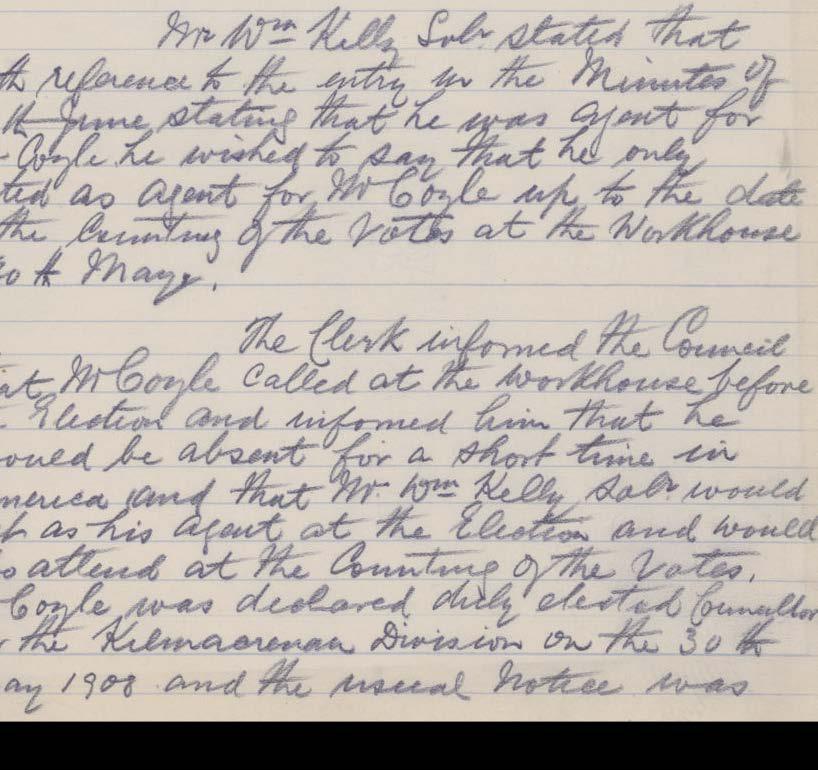 Mr Wm Kelly Solr stated that
th reference to the entry in the Minutes of
th June stating that he was agent for
Coyle he wished to say that he only
ted as agent for Mr Coyle up to the date
the Counting of the Votes at the Workhouse
30th May.
The Clerk informed the Council
at Mr Coyle called at the workhouse before
Election and informed him that he
ould be absent for a short time in
merica and that Mr. Wm Kelly Solr would
ct as his agent at the Election and would
so attend at the Counting of the Votes.
Coyle was declared duly elected Councillor
r the Kilmacrenan Division on the 30th
ay 1908 and the usual Notice was